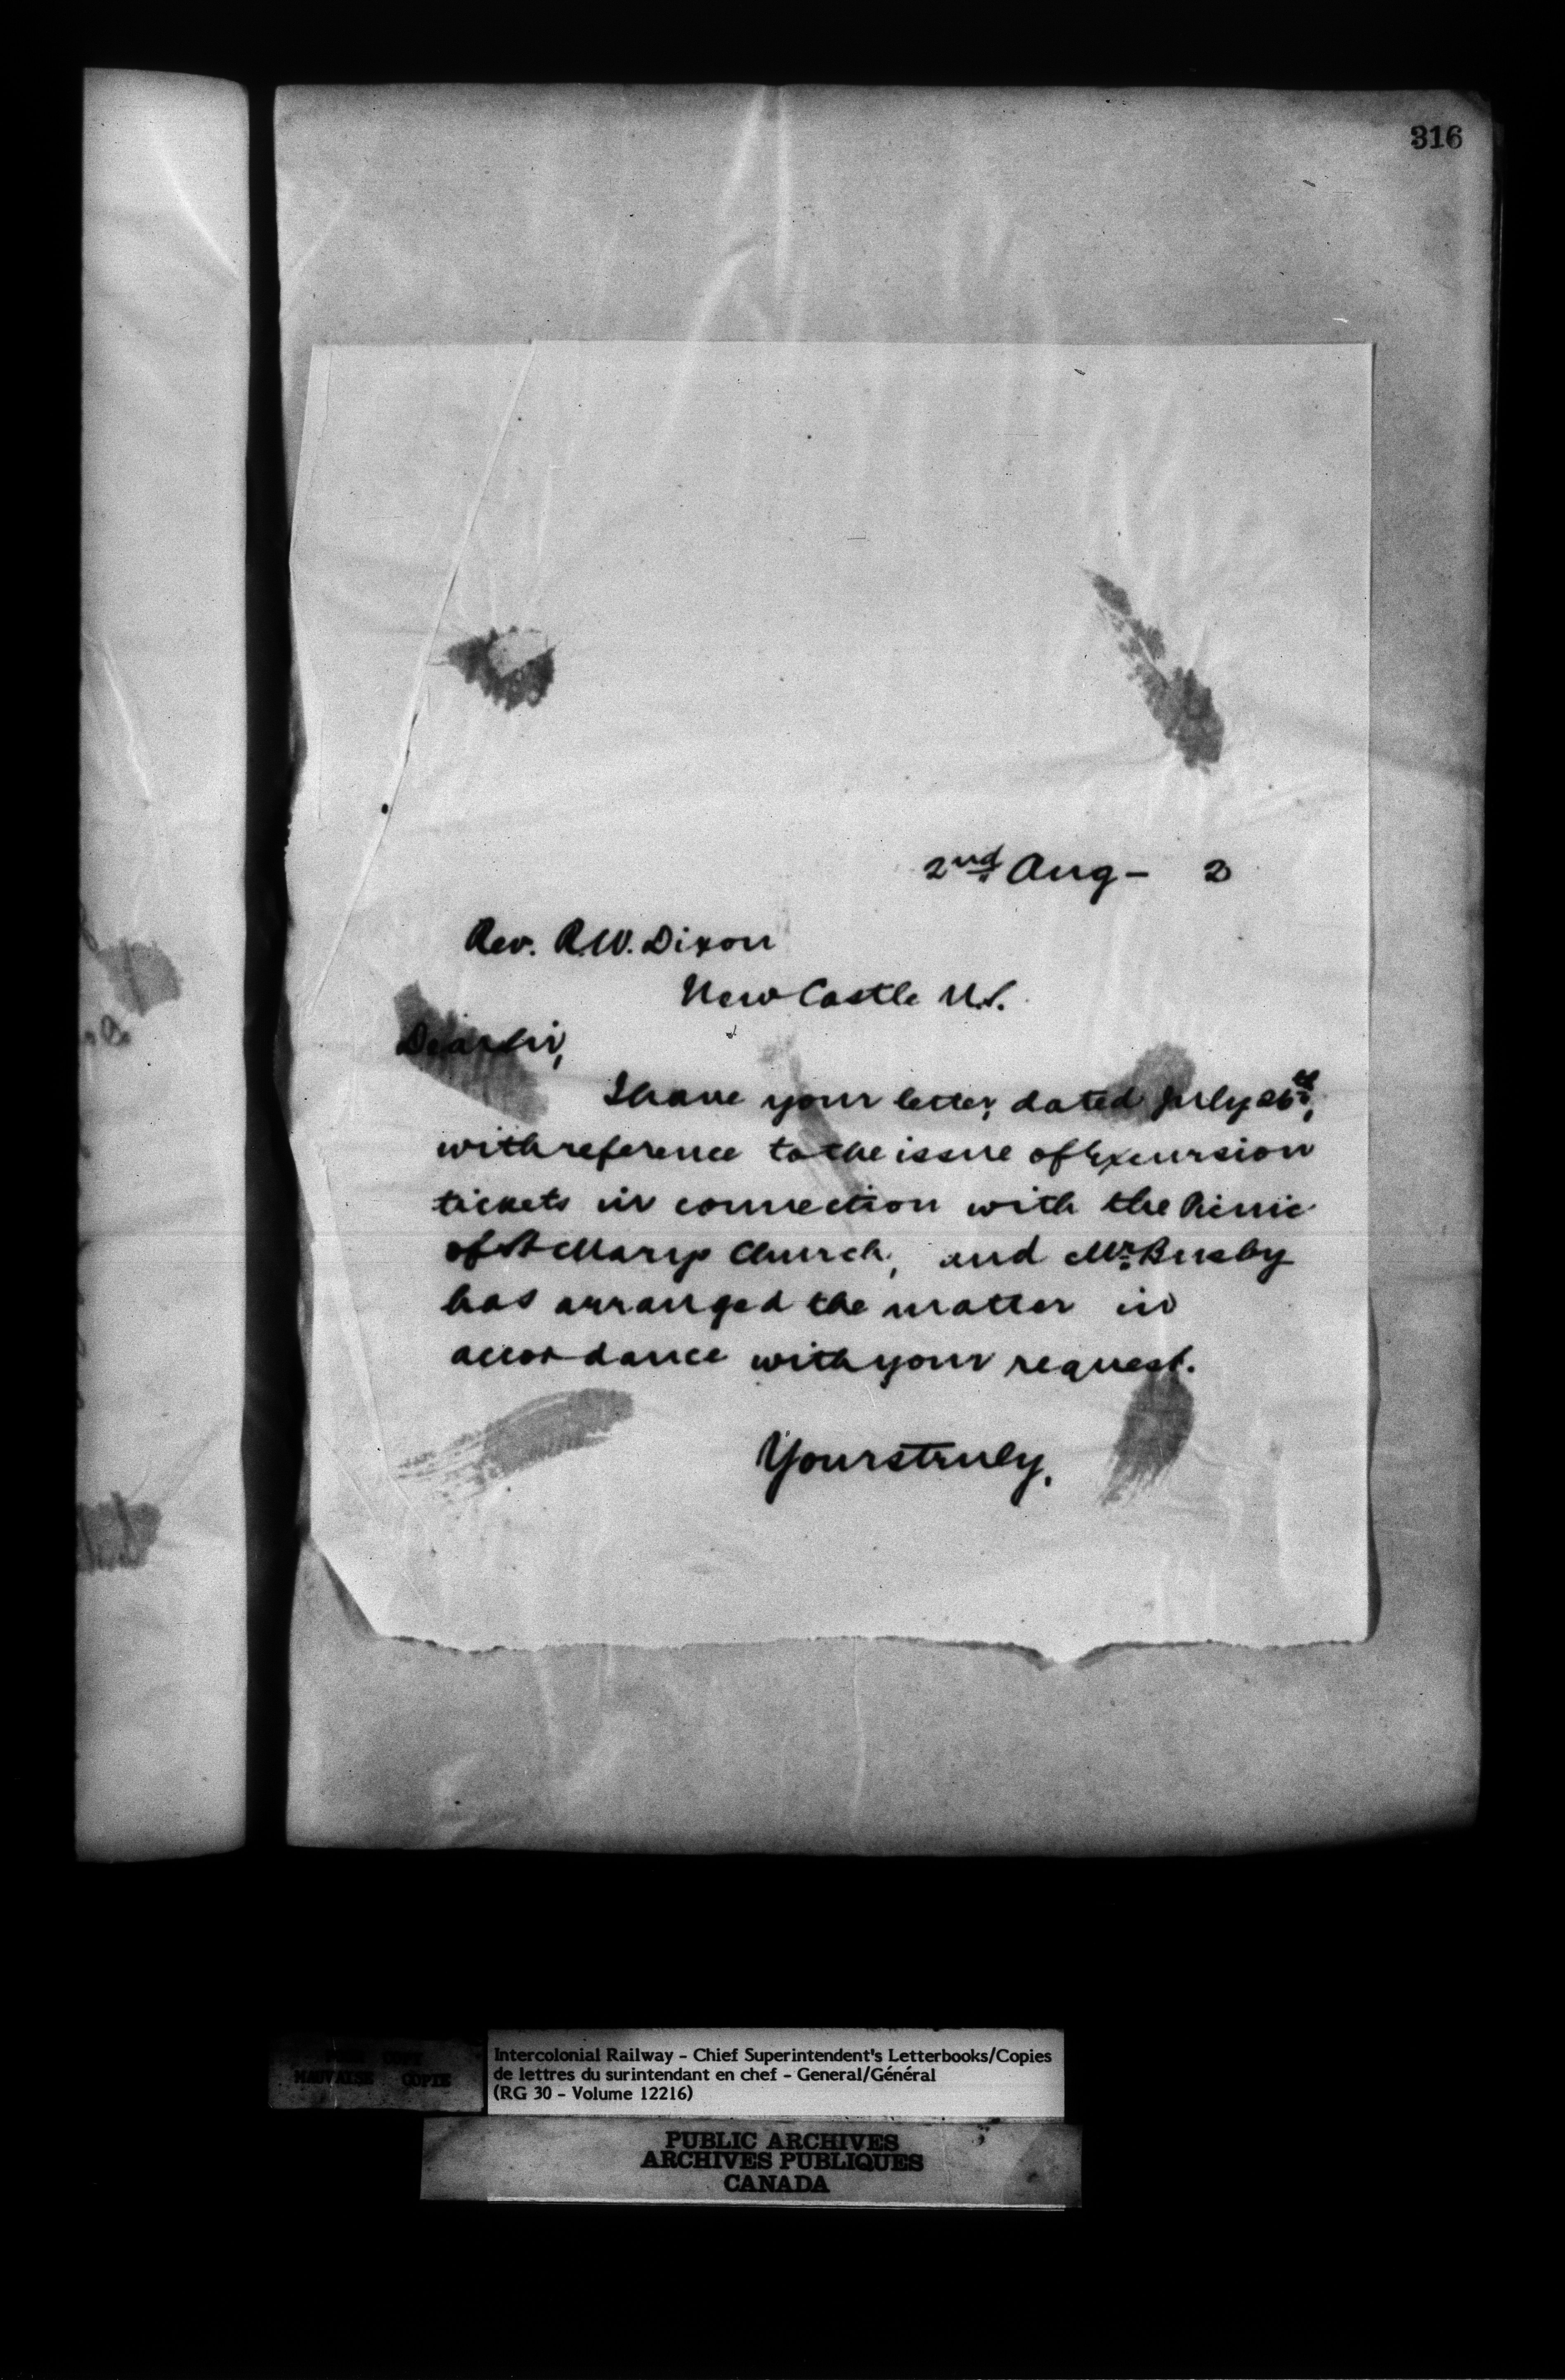 316
2nd Aug - 2
Rev. R.W. Dixon
New Castle N.S.
Dear Sir,
I have your letter dated July 26th,
with reference to the issue of Excursion
tickets in connection with the Picnic
of St Marys Church, and Mr. Busby
has arranged the matter in
accordance with your request.
Yours truly,
MAUVAISE COPIE
Intercolonial Railway - Chief Superintendent's Letterbooks/Copies
de lettres du surintendant en chef - General/Général
(RG 30 - Volume 12216)
PUBLIC ARCHIVES
ARCHIVES PUBLIQUES
CANADA